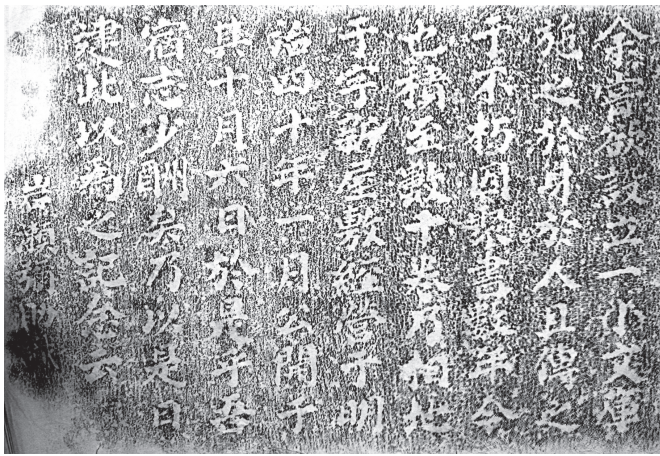 余嘗欲設立一小文庫
施之於身於人且傳之
于不朽因聚書數年今
也積至數十巻乃相地
于字新屋敷經營于明
治四十年一月公開于
其十月六日於是乎吾
宿志少酬矣乃以是日
建此以為之記念云
岩瀬弥助